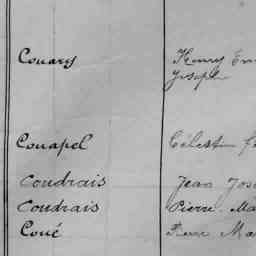 Couary Henry Em
Joseph
Couapel Célestin
Coudrais Jean José
Coudrais Pierre Ma
Coué Pierre Ma